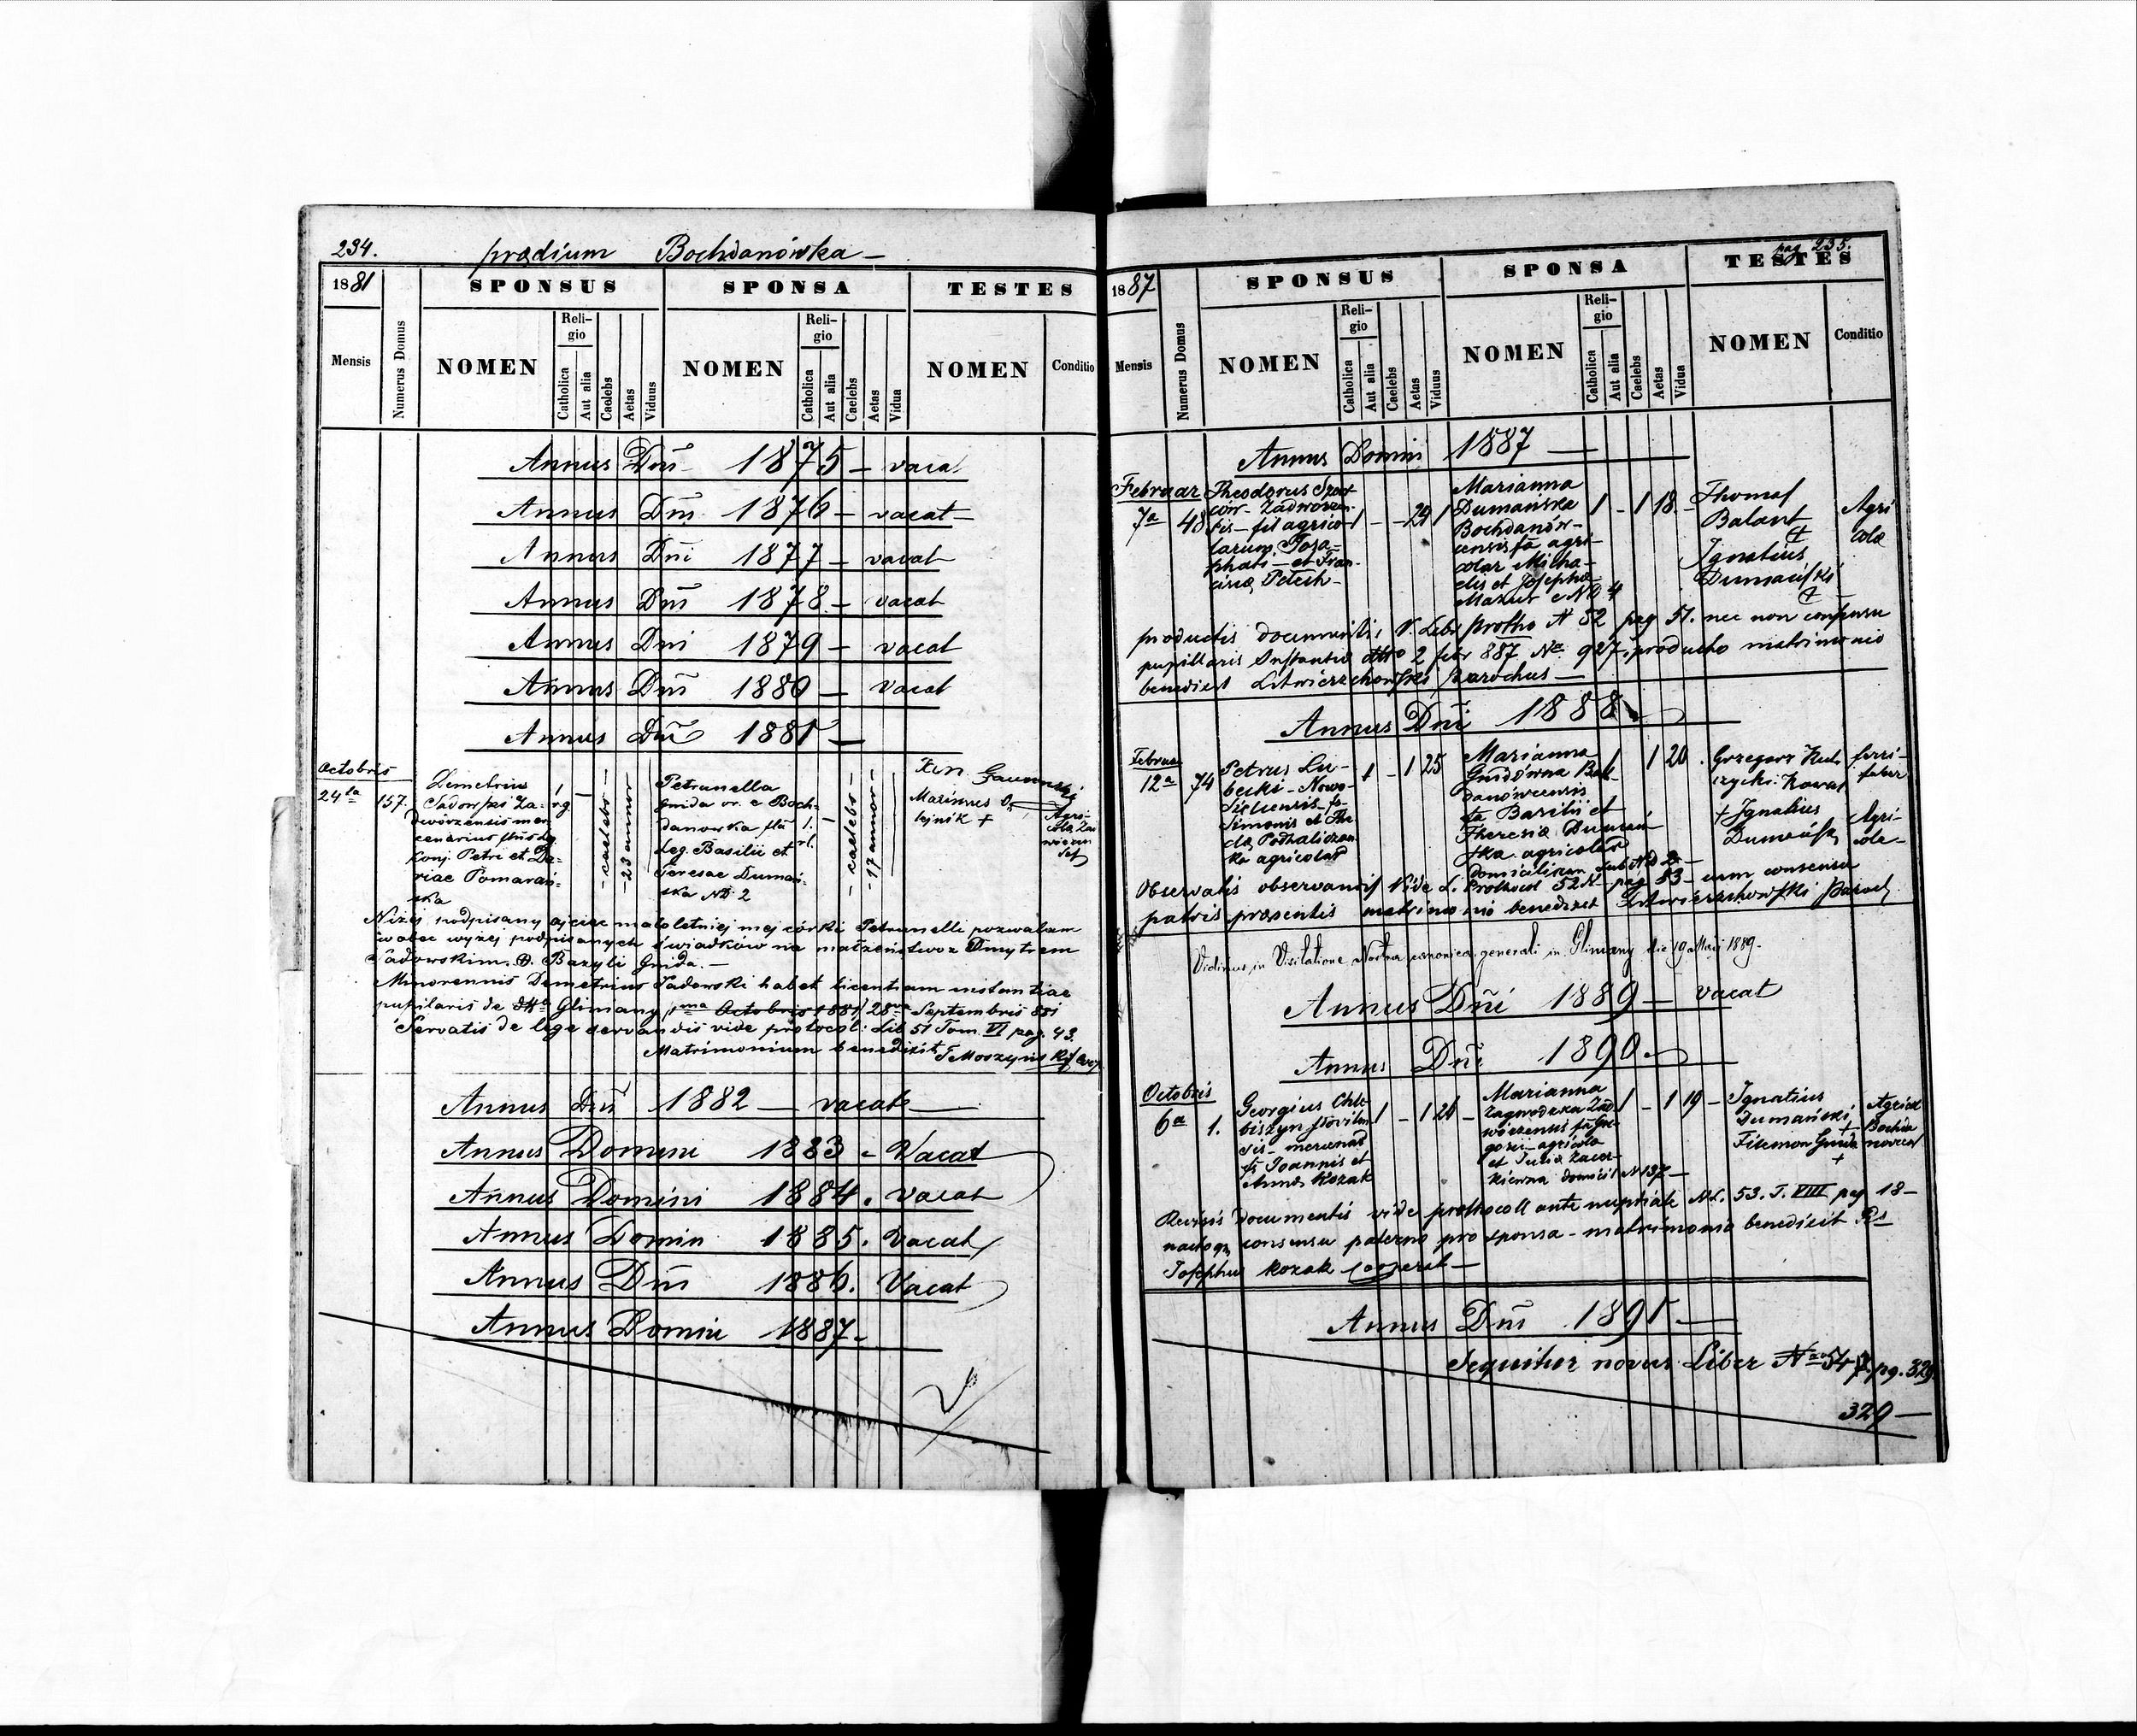 234. prædium Bochdanówka –
1881
SPONSUS
SPONSA
TESTES
Mensis
Numerus Domus
NOMEN
Reli-
gio
Catholica
Aut alia
Caelebs
Aetas
Viduus
NOMEN
Reli-
gio
Catholica
Aut alia
Caelebs
Aetas
Vidua
NOMEN
Conditio
Annus Dni 1875 – vacat
Annus Dni 1876 – vacat –
Annus Dni 1877 – vacat
Annus Dni 1878 – vacat
Annus Dni 1879 – vacat
Annus Dni 1880 – vacat
Annus Dni 1881 –
Octobris
24ta
157.
Demetrius
Sadowski Za-
dwórzensis mer-
cenarius filius leg.
conj. Petri et Da-
riae Pomarań-
ska
1
r.g.
–
– caelebs –
– 23 annor
Petrunella
Gnida vr. e Boch-
danowka fila
leg. Basilii et
Teresae Dumań-
ska ND 2
1.
rl.
–
– caelebs –
– 17 annor –
Marinus
tajnik +
Agri-
cola
Niżej podpisany ojciec małoletniej mej córki Petrunelli pozwalam
wobec wyżej podpisanych świadków na małżeństwo z Dmytrem
Sadowskim. Bazyli Gnida. –
Minorennis Demetrius Sadowski habet licentiam instantiae
pupilaris de Gliniany 1ma Octobris 1881/ Septembris 881
Servatis de lege servandis vide protocol: Lib 51 Tom. VI pag. 43.
Matrimonium benedixit
Annus Dni 1882 – vacat –
Annus Domini 1883 – Vacat
Annus Domini 1884. Vacat
Annus Domin 1885. Vacat
Annus Dni 1886. Vacat
Annus Domini 1887 –
pag 235.
1887
SPONSUS
SPONSA
TESTES
Mensis
Numerus Domus
NOMEN
Reli-
gio
Catholica
Aut alia
Caelebs
Aetas
Viduus
NOMEN
Reli-
gio
Catholica
Aut alia
Caelebs
Aetas
Vidua
NOMEN
Conditio
Annus Domini 1887 –
Februar
7a
48
Theodorus
Zadwórzen-
sis – fil agrico-
larum Josa-
phati – et Fran-
ciscæ Petech –
1 – – 29 1
Marianna
Dumańska
Bochdanów-
censis fa agri-
colar Micha-
elis et Josephæ
Mazur e ND 4
1 – 1 18 –
Thomas
Balant
+
Ignatius
Dumański
+
Agri
colæ
productis documentis V. Libr protho N 52 pag 51. nec non consensu
pupillaris Instantiæ dtto 2 febr 887 No 927. producto matrimonio
benedixit Litwierzchowski parochus –
Annus Dni 1888
Februar
12a
74
Petrus Lu-
becki – Nowo-
Sielcensis – fs
Simonis et The-
clæ Podhaliczan-
ka agricolar
1 – 1 25
Marianna
Gnidówna Boh-
danówcensis
fa Basilii et
Theresiæ Dumań
ska agricolar
domicilium sub ND 2 –
1 1 20 .
Grzegorz
Kowal
+ Ignatius
Dumański
ferri-
faber
Agri-
colæ –
Observatis observandis Vide L. Prothocol 52 – pag 53 – cum consensu
patris præsentis matrimonio benedixit Litwierzchowski Paroch
Vidimus in Visitatione Nostra canonica generali in Gliniany die 19 Maji 1889.
Annus Dni 1889 – vacat
Annus Dni 1890. –
Octobris
6a
1.
Georgius
sis – mercenar
fs Joannis et
Annæ Kozak
1 – 1 26 –
Marianna
Zagrodzka Zad
wórzensis fa Gre-
gorii – agricola
et Juliæ
domicil N 137 –
1 – 1 19 –
Ignatius
Dumański
+
Filemon Gnida
+
Agricol
Bochda
novcen
Revisis documentis vide prothocoll ante nuptiale NL. 53. T. VIII pag 18 –
nactoq consensu paterno pro sponsa – matrimonio benedixit Rds
Josephus Kozak cooperat –
Annus Dni 1891 –
Sequitur novus Liber No 54 pg. 329
329 –